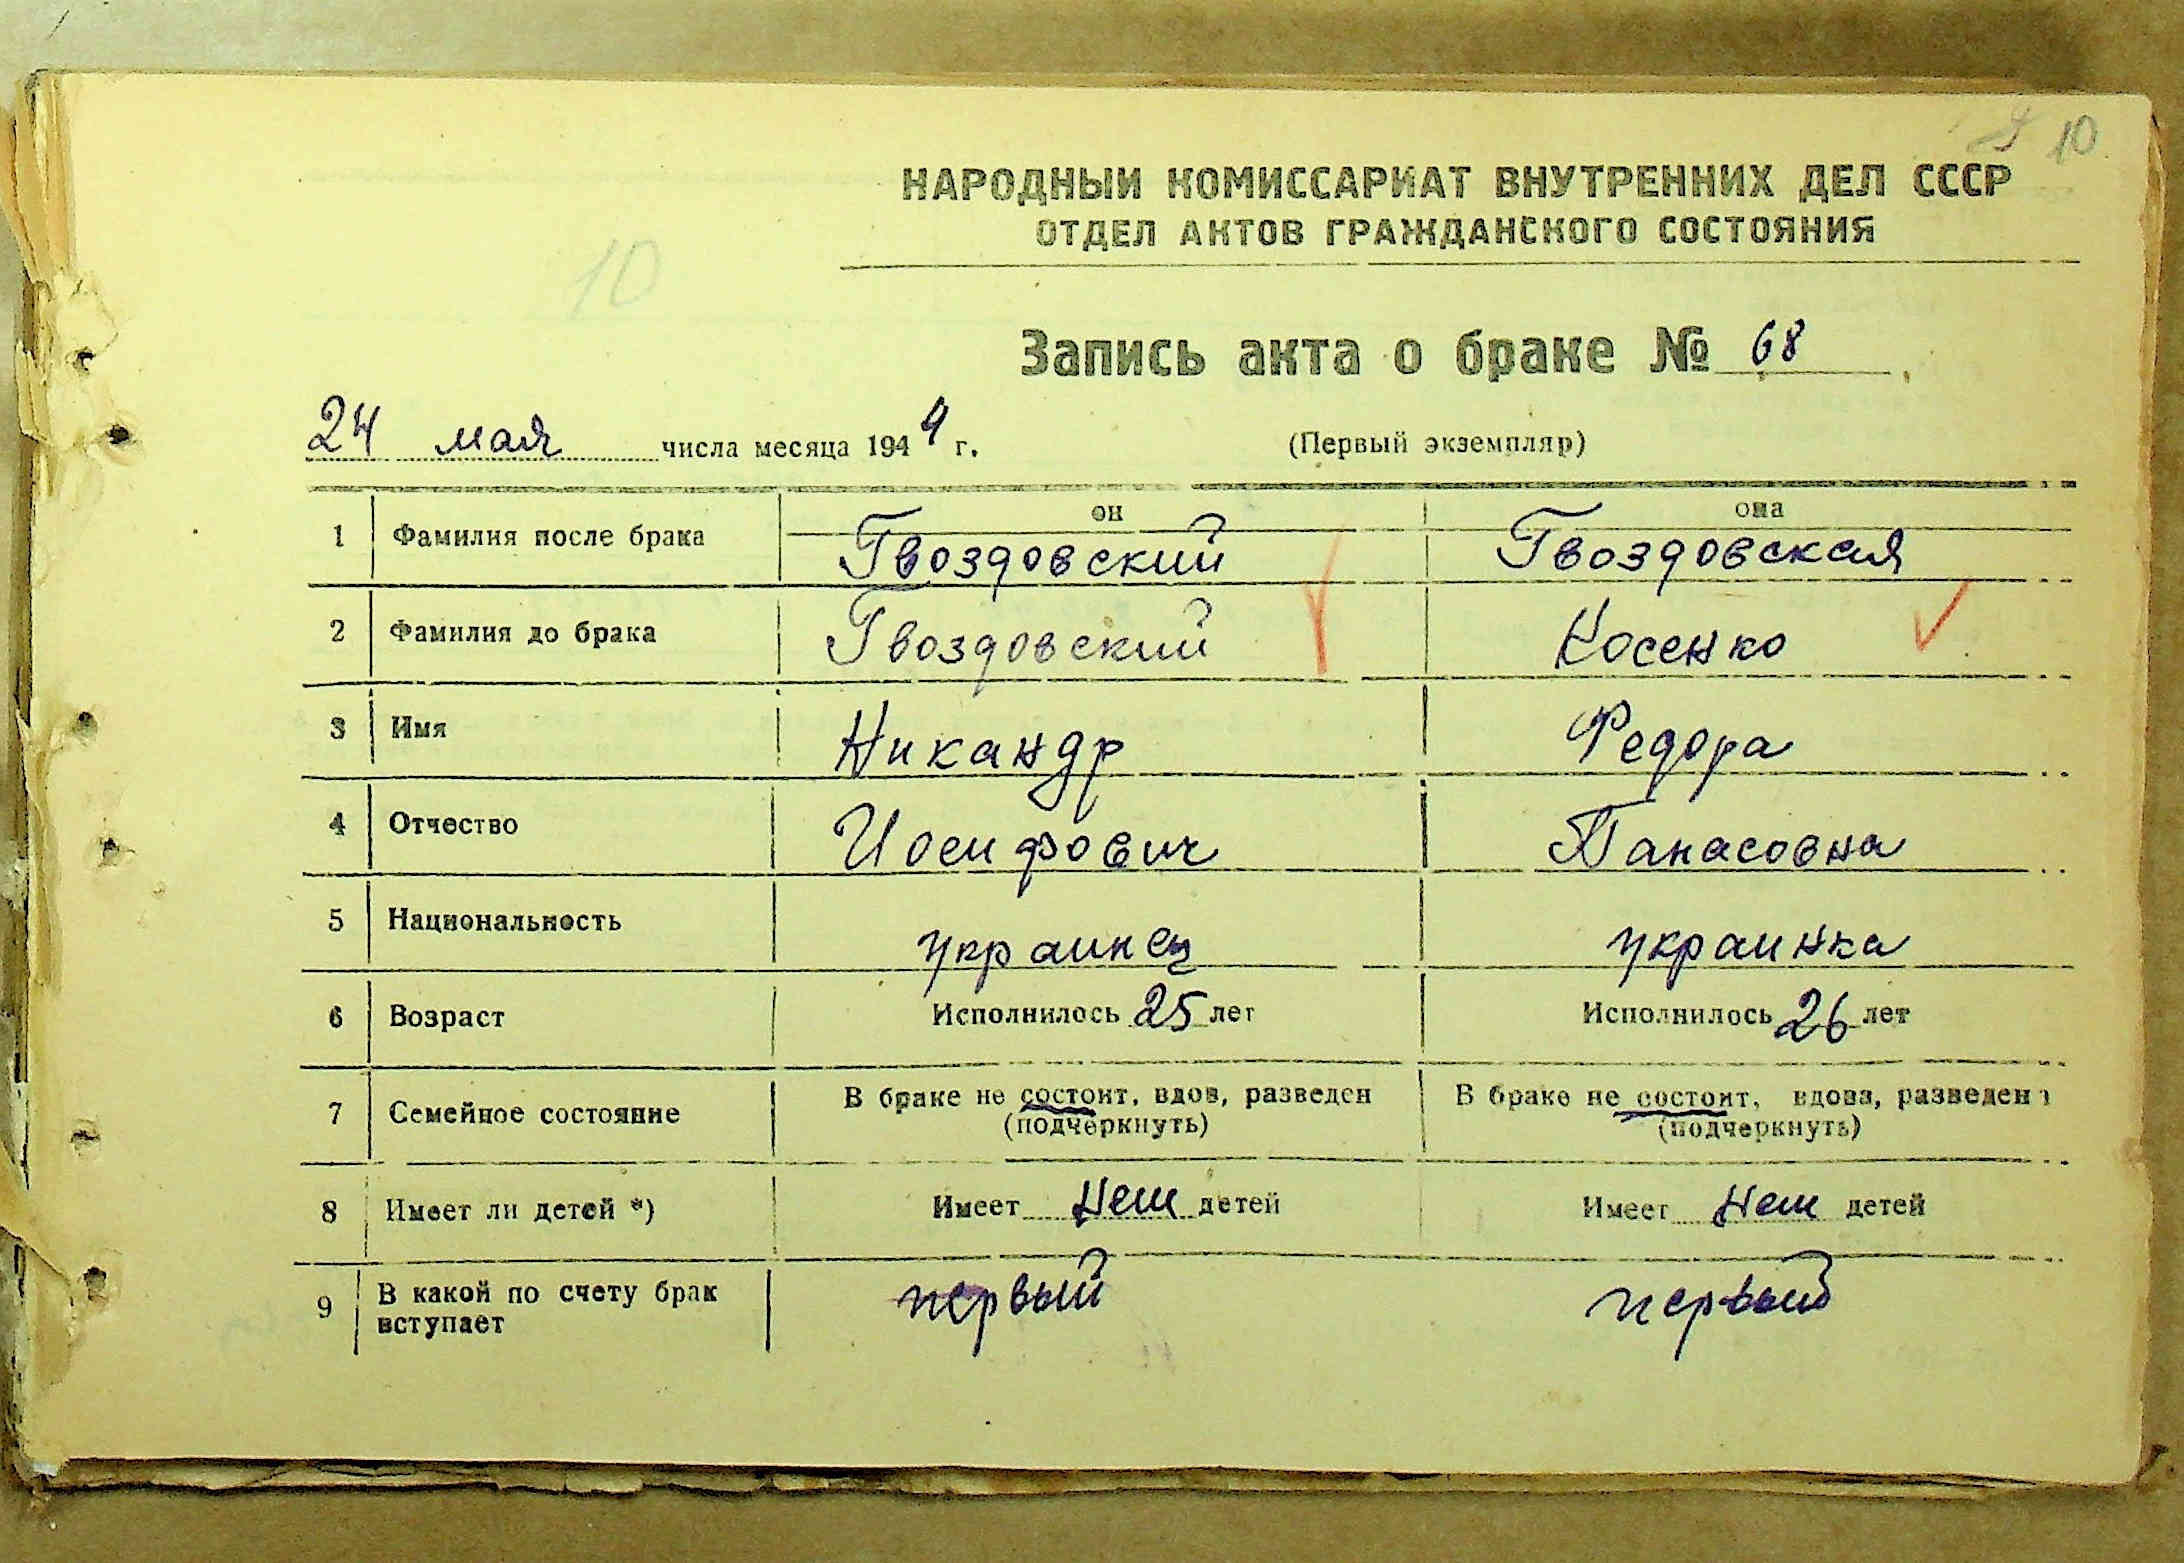 10
НАРОДНЫЙ КОМИССАРИАТ ВНУТРЕННИХ ДЕЛ СССР
ОТДЕЛ АКТОВ ГРАЖДАНСКОГО СОСТОЯНИЯ
10
Запись акта о браке № 68
24 мая числа месяца 1944 г. (Первый экземпляр)
он она
1 Фамилия после брака Гвоздовский Гвоздовская
2 Фамилия до брака Гвоздовский Косенко
3 Имя Никандр Федора
4 Отчество Иосифович Панасовна
5 Национальность украинец украинка
6 Возраст Исполнилось 25 лет Исполнилось 26 лет
7 Семейное состояние В браке не состоит, вдов, разведен В браке не состоит, вдова, разведена
(подчеркнуть) (подчеркнуть)
8 Имеет ли детей *) Имеет нет детей Имеет нет детей
9 В какой по счету брак вступает первый первый